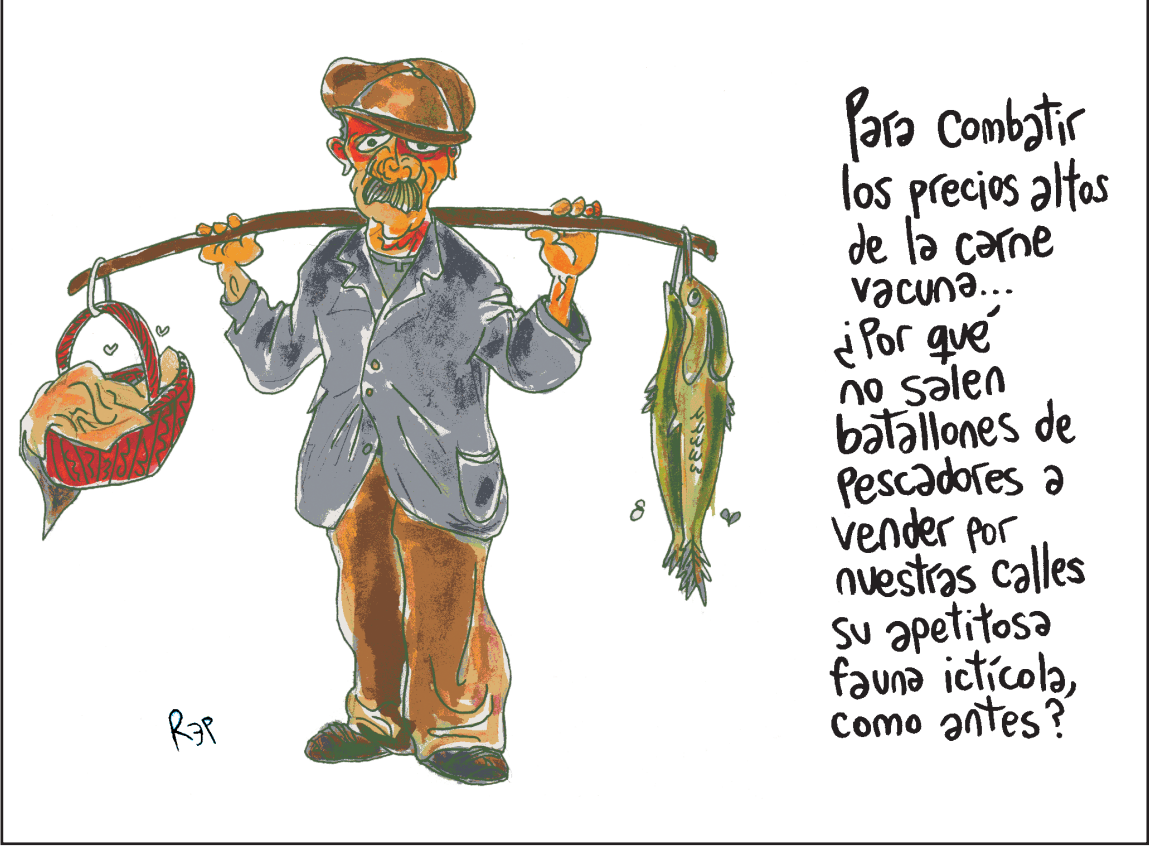 Para combatir
los precios altos
de la carne
vacuna...
¿Por qué
no salen
batallones de
pescadores a
vender por
nuestras calles
su apetitosa
fauna ictícola,
como antes?
REP